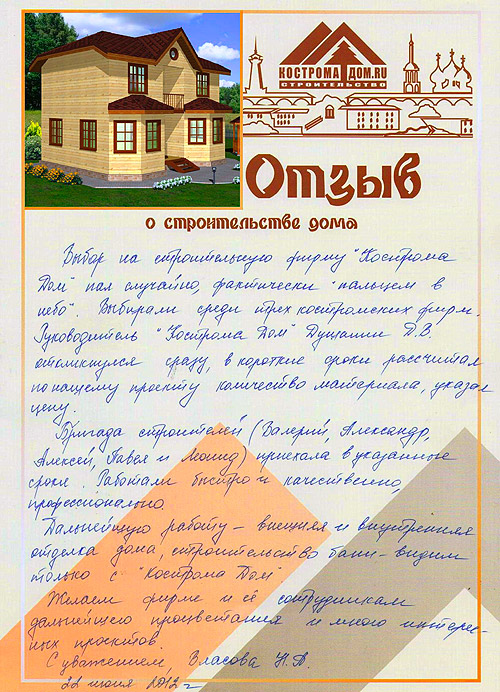 КОСТРОМА ДОМ.RU
СТРОИТЕЛЬСТВО
Отзыв
о строительстве дома
Выбор на строительную фирму "Кострома
Дом" пал случайно, фактически "пальцем в
небо". Выбирали среди трех костромских фирм.
Руководитель "Кострома Дом" Д.В.
откликнулся сразу, в короткие сроки рассчитал
по нашему проекту количество материала, указал
цену.
Бригада строителей (Валерий, Александр,
Алексей, Павел и Леонид) приехала в указанные
сроки. Работали быстро и качественно,
профессионально.
Дальнейшую работу – внешняя и внутренняя
отделка дома, строительство бани – видим
только с "Кострома Дом".
Желаем фирме и её сотрудникам
дальнейшего процветания и много интерес-
ных проектов.
С уважением, Власова Н.А.
22 июня 2012 г